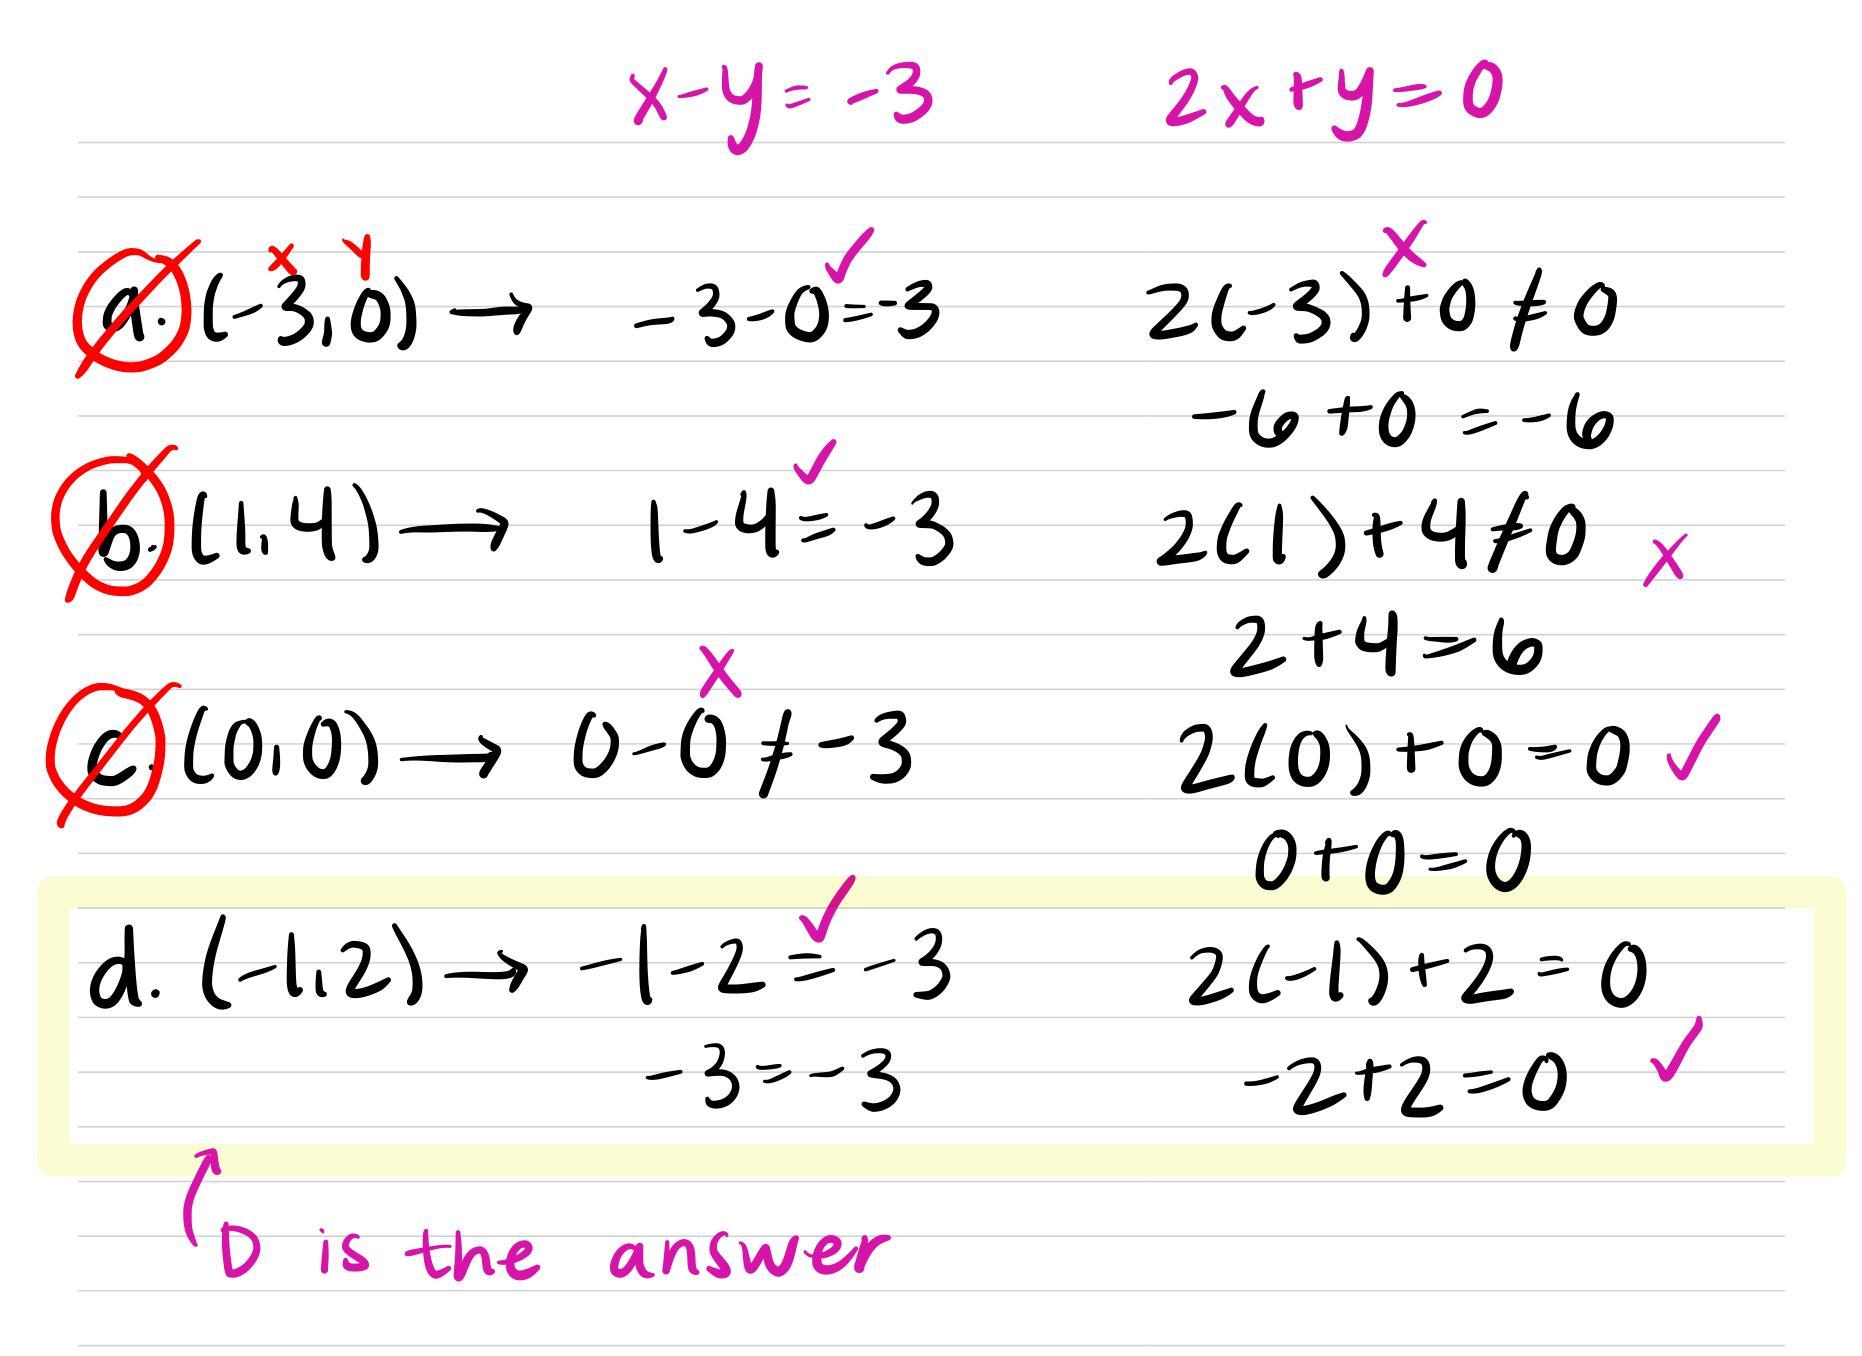 x-y= -3 2x+y=0
x y
a. (-3,0) → -3-0=-3 2(-3)+0≠0
-6+0 = -6
b. (1,4) → 1-4=-3 2(1)+4≠0
2+4=6
c. (0,0) → 0-0≠-3 2(0)+0=0
0+0=0
d. (-1,2) → -1-2=-3 2(-1)+2=0
-3=-3 -2+2=0
D is the answer